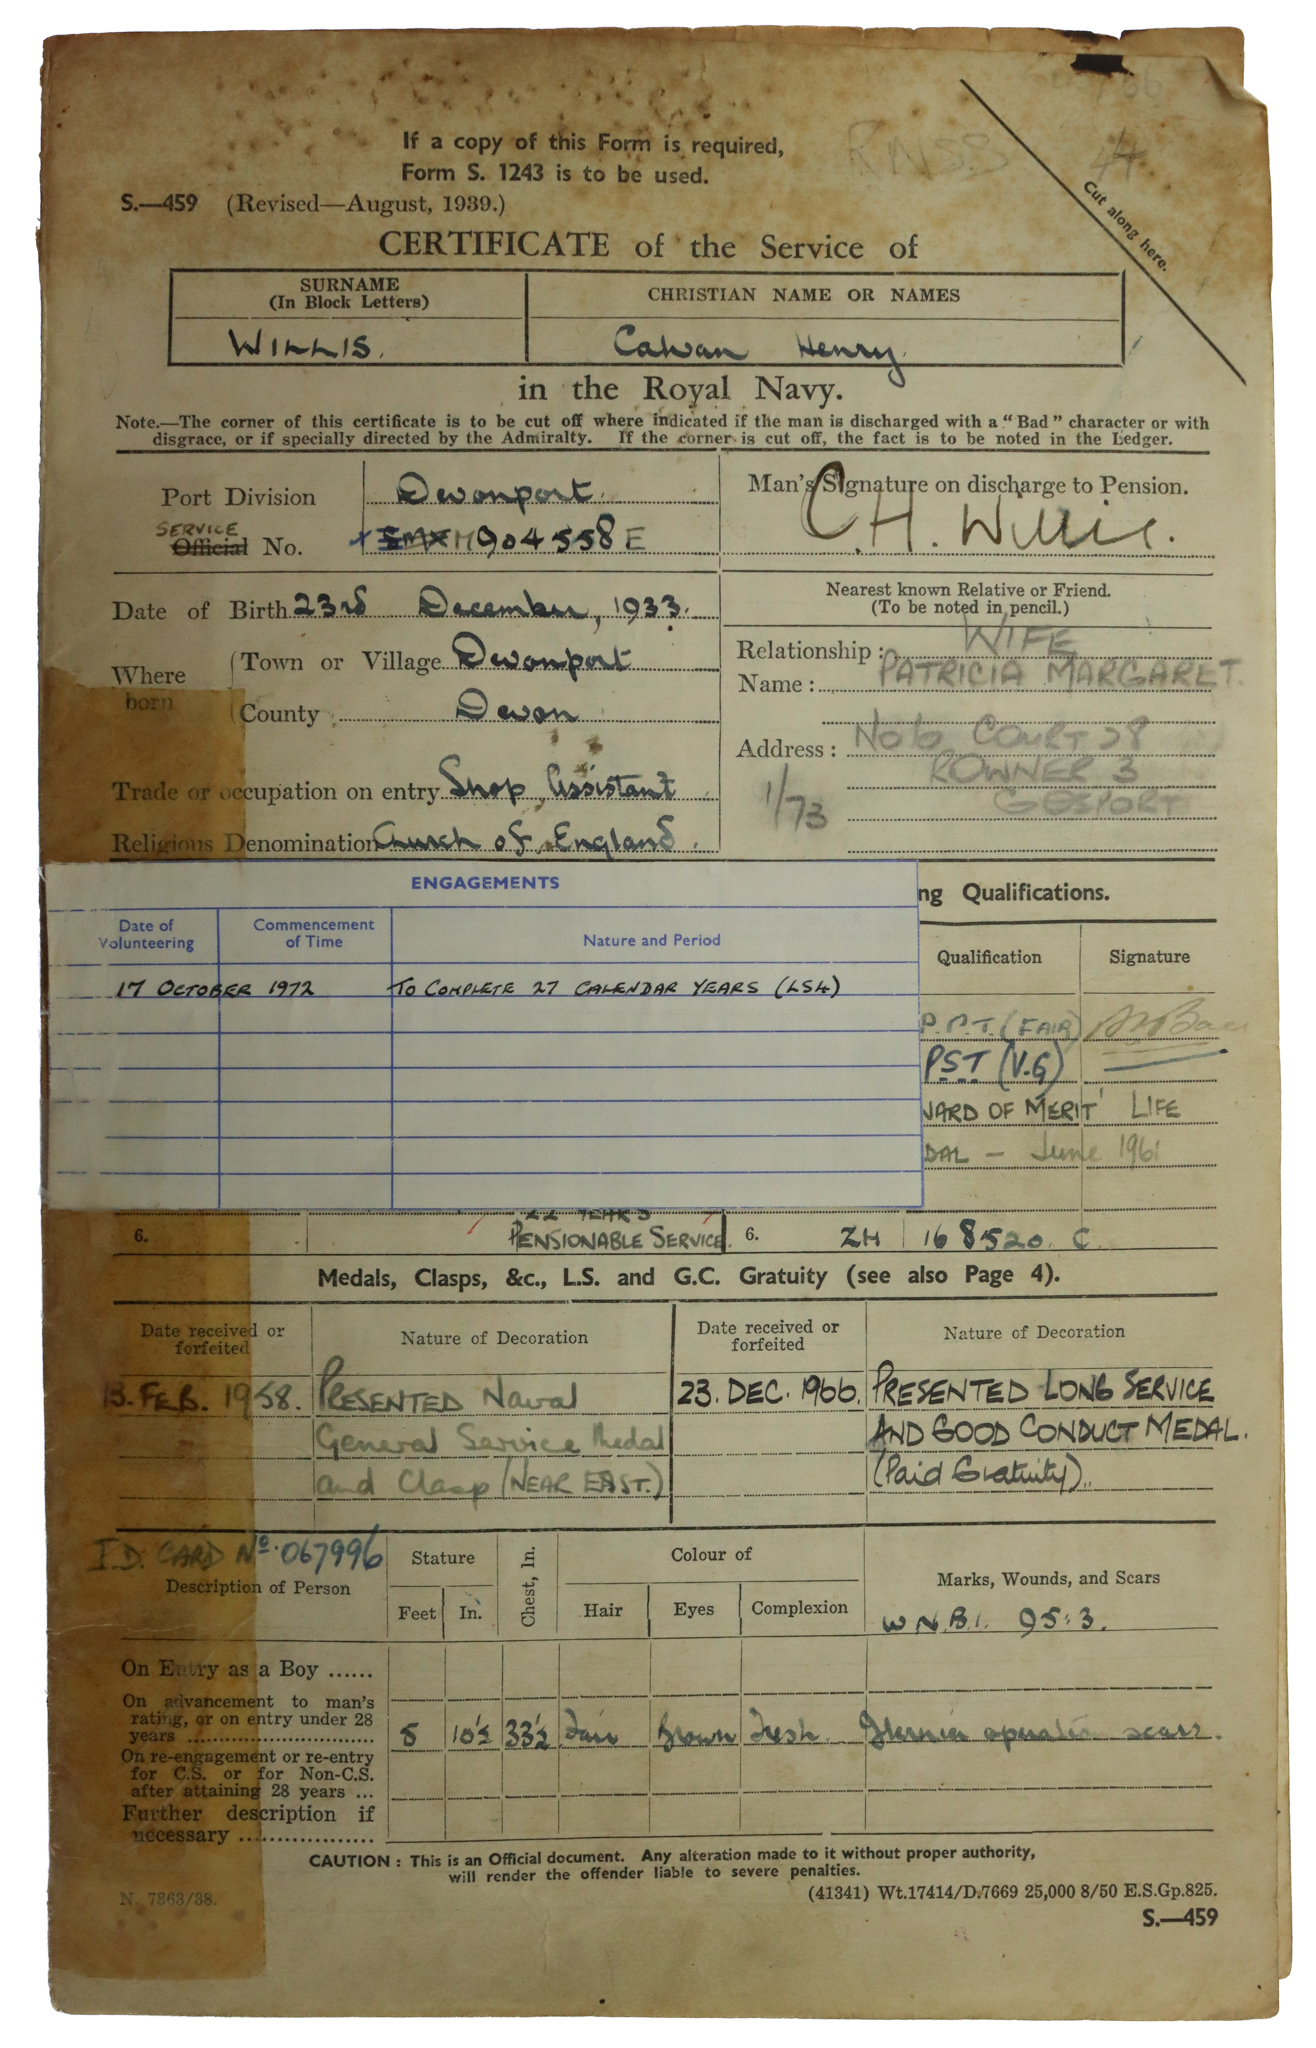 If a copy of this Form is required,
Form S. 1243 is to be used.
RNSS
44
Cut along here.
S.—459 (Revised—August, 1939.)
CERTIFICATE of the Service of
SURNAME
(In Block Letters)
CHRISTIAN NAME OR NAMES
WILLIS.
Calvan Henry.
in the Royal Navy.
Note.—The corner of this certificate is to be cut off where indicated if the man is discharged with a "Bad" character or with
disgrace, or if specially directed by the Admiralty. If the corner is cut off, the fact is to be noted in the Ledger.
Port Division Devonport.
SERVICE
Official No. SMX M904558E
Man's Signature on discharge to Pension.
C.H. Willis.
Date of Birth 23rd December, 1933.
Where born
Town or Village Devonport
County Devon
Trade or occupation on entry Shop Assistant
Religious Denomination Church of England.
Nearest known Relative or Friend.
(To be noted in pencil.)
Relationship: WIFE
Name: PATRICIA MARGARET.
Address: No 6 COURT 28
ROWNER 3
GOSPORT
1/73
ENGAGEMENTS
Date of Volunteering
Commencement of Time
Nature and Period
17 OCTOBER 1972 TO COMPLETE 27 CALENDAR YEARS (LS4)
ng Qualifications.
Qualification Signature
P.P.T. (FAIR)
PST (V.G)
WARD OF MERIT' LIFE
DAL — June 1961
6. 22 YEARS
PENSIONABLE SERVICE. 6. ZH 168520. C.
Medals, Clasps, &c., L.S. and G.C. Gratuity (see also Page 4).
Date received or forfeited
Nature of Decoration
Date received or forfeited
Nature of Decoration
13. FEB. 1958. PRESENTED Naval
General Service Medal
and Clasp (NEAR EAST.)
23. DEC. 1966. PRESENTED LONG SERVICE
AND GOOD CONDUCT MEDAL.
(Paid Gratuity).
I.D. CARD No. 067996
Description of Person
Stature
Feet In.
Chest, In.
Colour of
Hair Eyes Complexion
Marks, Wounds, and Scars
W.N.B.1. 95:3.
On Entry as a Boy ......
On advancement to man's
rating, or on entry under 28
years ..............................
5 10½ 33½ Fair Brown Fresh. Hernia operation scars.
On re-engagement or re-entry
for C.S. or for Non-C.S.
after attaining 28 years ...
Further description if
necessary ..................
CAUTION : This is an Official document. Any alteration made to it without proper authority,
will render the offender liable to severe penalties.
N. 7863/38.
(41341) Wt.17414/D.7669 25,000 8/50 E.S.Gp.825.
S.—459